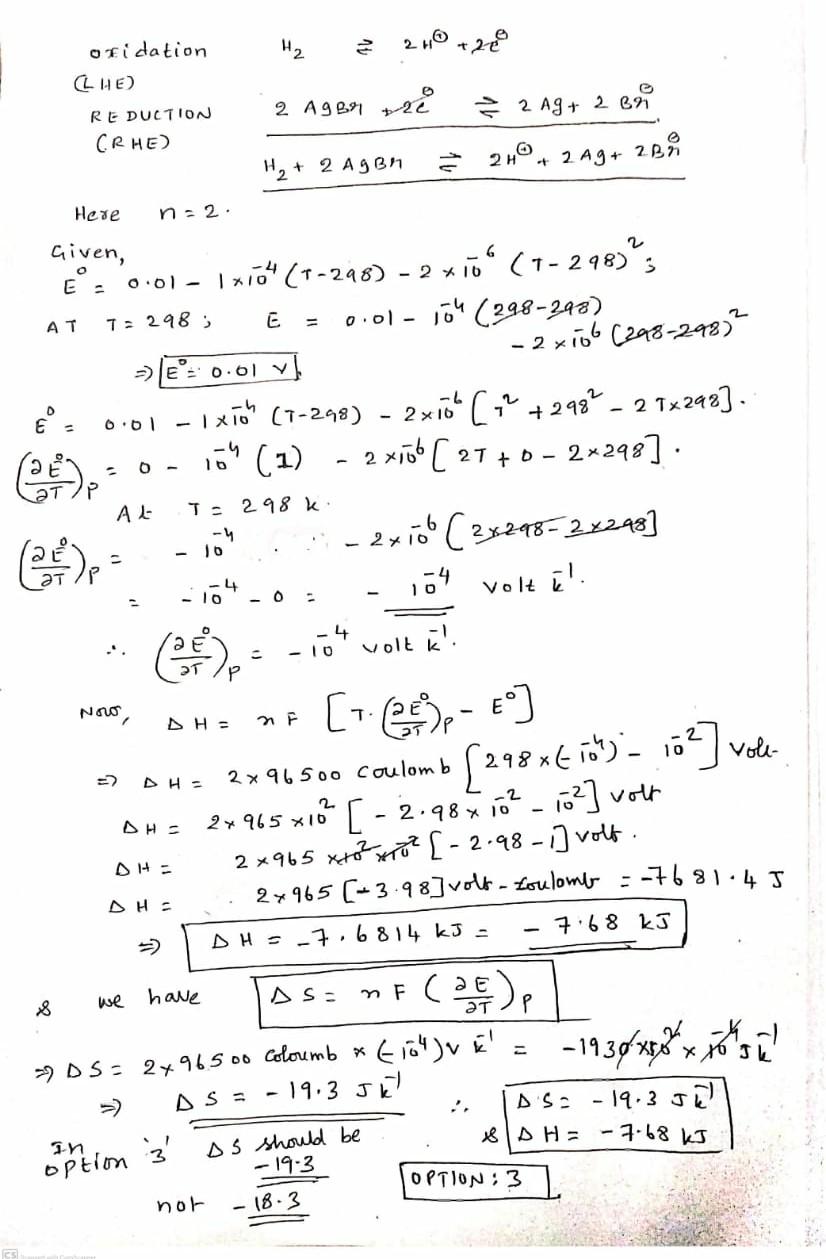 oxidation H₂ ⇌ 2H⊕ + 2e⊖
(LHE)
REDUCTION 2 AgBr + 2e⊖ ⇌ 2 Ag + 2 Br⊖
(RHE)
H₂ + 2 AgBr ⇌ 2H⊕ + 2 Ag + 2Br⊖
Here n = 2.
Given,
E° = 0.01 - 1×10⁻⁴ (T-298) - 2×10⁻⁶ (T-298)²;
AT T = 298; E = 0.01 - 10⁻⁴ (298-298)
- 2×10⁻⁶ (298-298)²
⇒ E° = 0.01 V
E° = 0.01 - 1×10⁻⁴ (T-298) - 2×10⁻⁶ [T² + 298² - 2T×298].
(∂E°/∂T)P = 0 - 10⁻⁴ (1) - 2×10⁻⁶ [2T + 0 - 2×298].
At T = 298 k.
(∂E°/∂T)P = - 10⁻⁴ - 2×10⁻⁶ [2×298 - 2×298]
= - 10⁻⁴ - 0 = - 10⁻⁴ volt k⁻¹.
∴ (∂E°/∂T)P = - 10⁻⁴ volt k⁻¹.
Now, ΔH = nF [T. (∂E°/∂T)P - E°]
⇒ ΔH = 2×96500 coulomb [298×(-10⁻⁴) - 10⁻²] volt
ΔH = 2×965×10² [- 2.98×10⁻² - 10⁻²] volt
ΔH = 2×965 ×10² ×10⁻² [- 2.98 - 1] volt.
ΔH = 2×965 [-3.98] volt-coulomb = -7681.4 J
⇒ ΔH = -7.6814 kJ = - 7.68 kJ
& we have ΔS = nF (∂E/∂T)P
⇒ ΔS = 2×96500 coloumb × (-10⁻⁴) v k⁻¹ = -1930×10² × 10⁻⁴ J k⁻¹
⇒ ΔS = - 19.3 J k⁻¹ ∴ ΔS = - 19.3 J k⁻¹
& ΔH = - 7.68 kJ
In option '3' ΔS should be
- 19.3
OPTION : 3
not - 18.3
CS